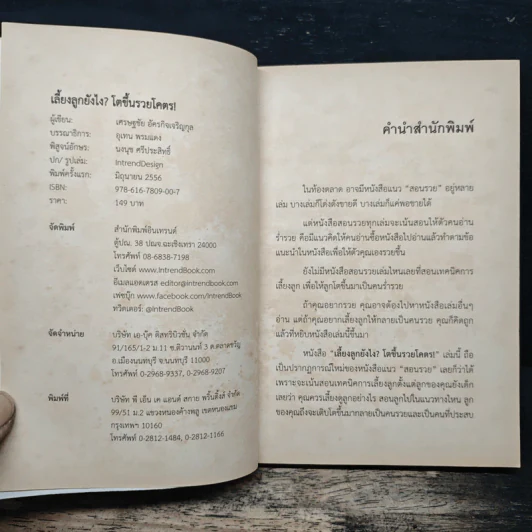 เลี้ยงลูกยังไง? โตขึ้นรวยโคตร!
ผู้เขียน: เศรษฐชัย อัครกิจเจริญกุล
บรรณาธิการ: อุเทน พรมแดง
พิสูจน์อักษร: นงนุช ศรีประสิทธิ์
ปก/ รูปเล่ม: IntrendDesign
พิมพ์ครั้งแรก: มิถุนายน 2556
ISBN: 978-616-7809-00-7
ราคา: 149 บาท
จัดพิมพ์ สำนักพิมพ์อินเทรนด์
ตู้ปณ. 38 ปณจ.ฉะเชิงเทรา 24000
โทรศัพท์ 08-6838-7198
เว็บไซต์ www.IntrendBook.com
อีเมลแอดเดรส editor@intrendbook.com
เฟซบุ๊ก www.facebook.com/IntrendBook
ทวิตเตอร์: @IntrendBook
จัดจำหน่าย บริษัท เอ-บุ๊ค ดิสทริบิวชั่น จำกัด
91/165/1-2 ม.11 ซ.ติวานนท์ 3 ต.ตลาดขวัญ
อ.เมืองนนทบุรี จ.นนทบุรี 11000
โทรศัพท์ 0-2968-9337, 0-2968-9207
พิมพ์ที่ บริษัท พี เอ็น เค แอนด์ สกาย พริ้นติ้งส์ จำกัด
99/51 ม.2 แขวงหนองค้างพลู เขตหนองแขม
กรุงเทพฯ 10160
โทรศัพท์ 0-2812-1484, 0-2812-1166
คำนำสำนักพิมพ์
ในท้องตลาด อาจมีหนังสือแนว “สอนรวย” อยู่หลาย
เล่ม บางเล่มก็โด่งดังขายดี บางเล่มก็แค่พอขายได้
แต่หนังสือสอนรวยทุกเล่มจะเน้นสอนให้ตัวคนอ่าน
ร่ำรวย คือมีแนวคิดให้คนอ่านซื้อหนังสือไปอ่านแล้วทำตามข้อ
แนะนำในหนังสือเพื่อให้ตัวคุณเองรวยขึ้น
ยังไม่มีหนังสือสอนรวยเล่มไหนเลยที่สอนเทคนิคการ
เลี้ยงลูก เพื่อให้ลูกโตขึ้นมาเป็นคนร่ำรวย
ถ้าคุณอยากรวย คุณอาจต้องไปหาหนังสือเล่มอื่นๆ
อ่าน แต่ถ้าคุณอยากเลี้ยงลูกให้กลายเป็นคนรวย คุณก็คิดถูก
แล้วที่หยิบหนังสือเล่มนี้ขึ้นมา
หนังสือ “เลี้ยงลูกยังไง? โตขึ้นรวยโคตร!” เล่มนี้ ถือ
เป็นปรากฏการณ์ใหม่ของหนังสือแนว “สอนรวย” เลยก็ว่าได้
เพราะจะเน้นสอนเทคนิคการเลี้ยงลูกตั้งแต่ลูกของคุณยังเด็ก
เลยว่า คุณควรเลี้ยงดูลูกอย่างไร สอนลูกไปในแนวทางไหน ลูก
ของคุณถึงจะเติบโตขึ้นมากลายเป็นคนรวยและเป็นคนที่ประสบ